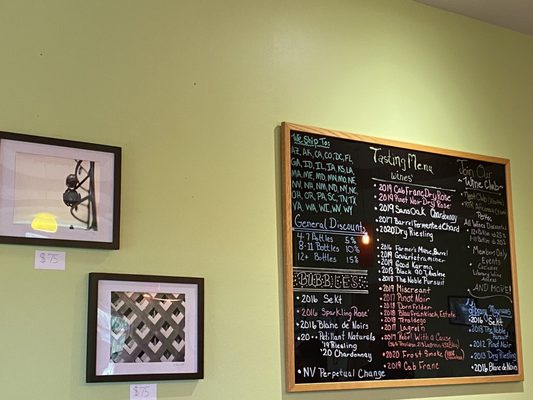 We Ship To:
AZ, AR, CA, CO, DC, FL,
GA, ID, IL, IA, KS, LA,
MA, ME, MD, MN, MO, NE
NV, NH, NM, ND, NY, NC
OH, OR, PA, SC, TN, TX
VA, WA, WI, WV, WY
General Discounts
4-7 Bottles 5%
8-11 Bottles 10%
12+ Bottles 15%
BUBBLES
2016 Sekt
2016 Sparkling Rosé
2016 Blanc de Noirs
Petillant Naturals
'19 Riesling
'20 Chardonnay
NV Perpetual Change
Tasting Menu
WINES
2019 Cab Franc Dry Rosé
2019 Pinot Noir Dry Rosé
2019 Sans Oak Chardonnay
2017 Barrel Fermented Chard
2020 Dry Riesling
2019 Gewurtztraminer
2019 Good Karma
2018 The Noble Pursuit
2019 Miscreant
2017 Pinot Noir
2018 Dornfelder
2018 Blaufrankisch, Estate
2018 Teroldego
2017 Lagrein
2017 Rebel With a Cause
2020 Frost Smoke
2019 Cab Franc
Join Our
Wine Club
Members Only
Events
AND MORE!
2016 Sekt
2013 The Noble
Pursuit
2012 Pinot Noir
2013 Dry
Riesling
2016 Blanc de Noirs
$75
$75